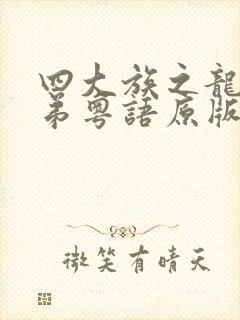 四大族之龍
弟粵語原版
微笑有晴天